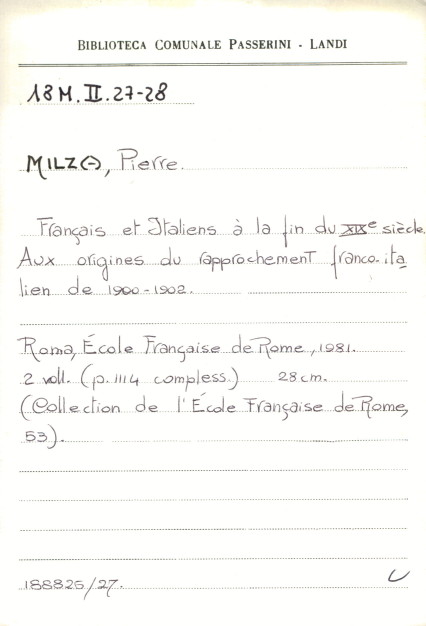 BIBLIOTECA COMUNALE PASSERINI - LANDI
18 M. II. 27-28
MILZA, Pierre.
Français et Italiens à la fin du XIXe siècle.
Aux origines du rapprochement franco-ita
lien de 1900-1902.
Roma, École Française de Rome, 1981.
2 voll. (p. 1114 compless.) 28 cm.
(Collection de l'École Française de Rome,
53).
188826/27.